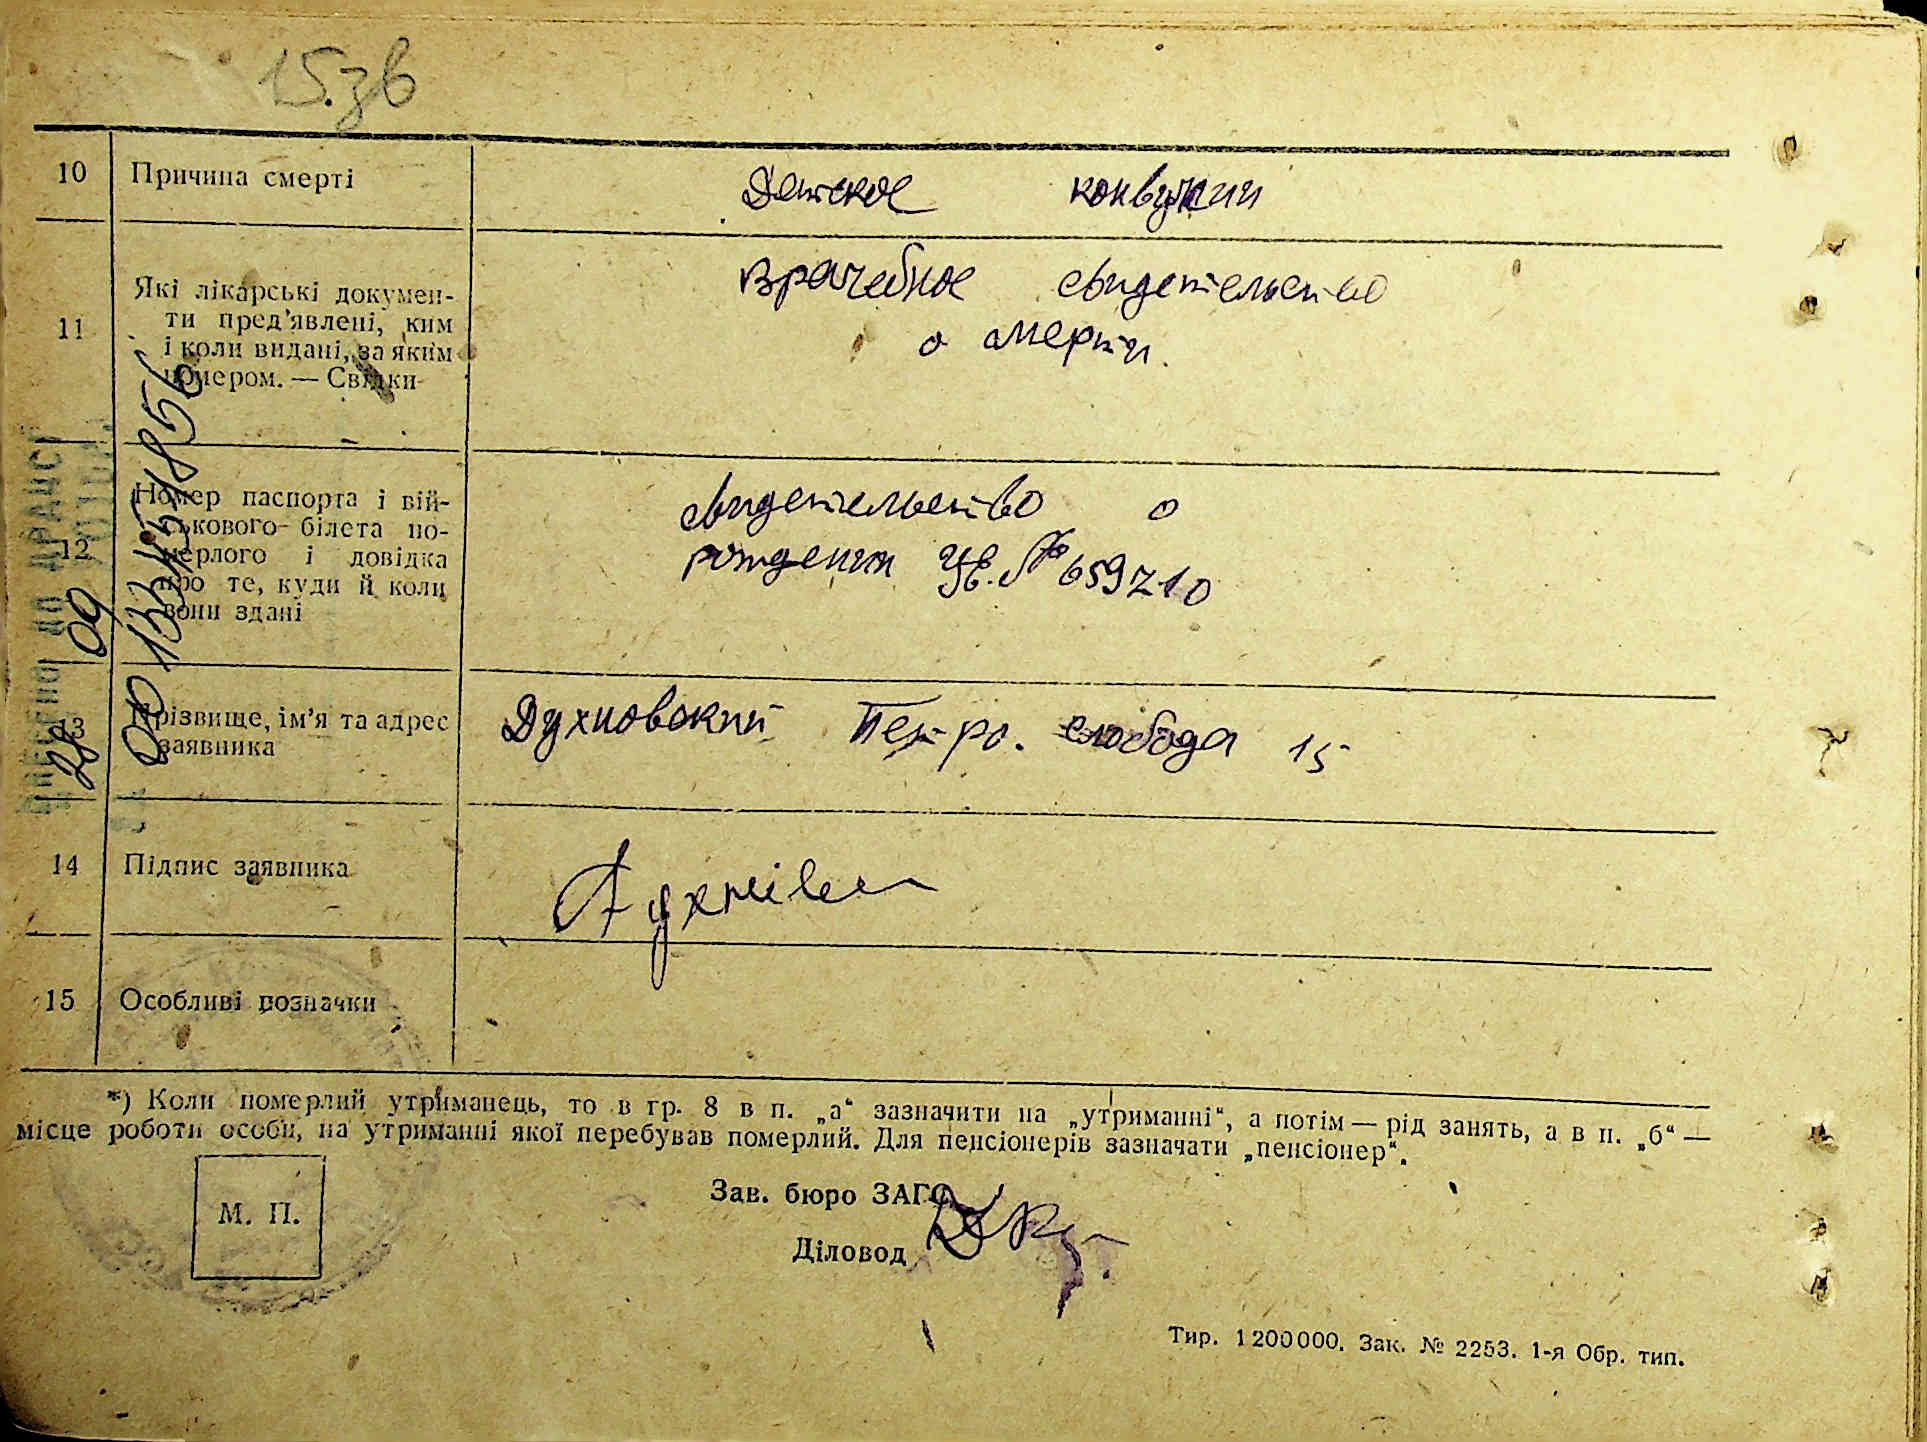 15.зв
10 Причина смерті Детское конвулкии
11 Які лікарські докумен-
ти пред'явлені, ким
і коли видані, за яким
номером. — Свідки
Врачебное свидетельство
о смерти.
12 Номер паспорта і вій-
ськового білета по-
мерлого і довідка
про те, куди й коли
вони здані
свидетельство о
рождении УЕ. № 659210
13 Прізвище, ім'я та адрес
заявника
Духновский Петро. слобода 15
14 Підпис заявника
15 Особливі позначки
28 09
00 133457856
*) Коли померлий утриманець, то в гр. 8 в п. „а“ зазначити на „утриманні“, а потім — рід занять, а в п. „б“ —
місце роботи особи, на утриманні якої перебував померлий. Для пенсіонерів зазначати „пенсіонер“.
М. П.
Зав. бюро ЗАГС
Діловод
Тир. 1200000. Зак. № 2253. 1-я Обр. тип.